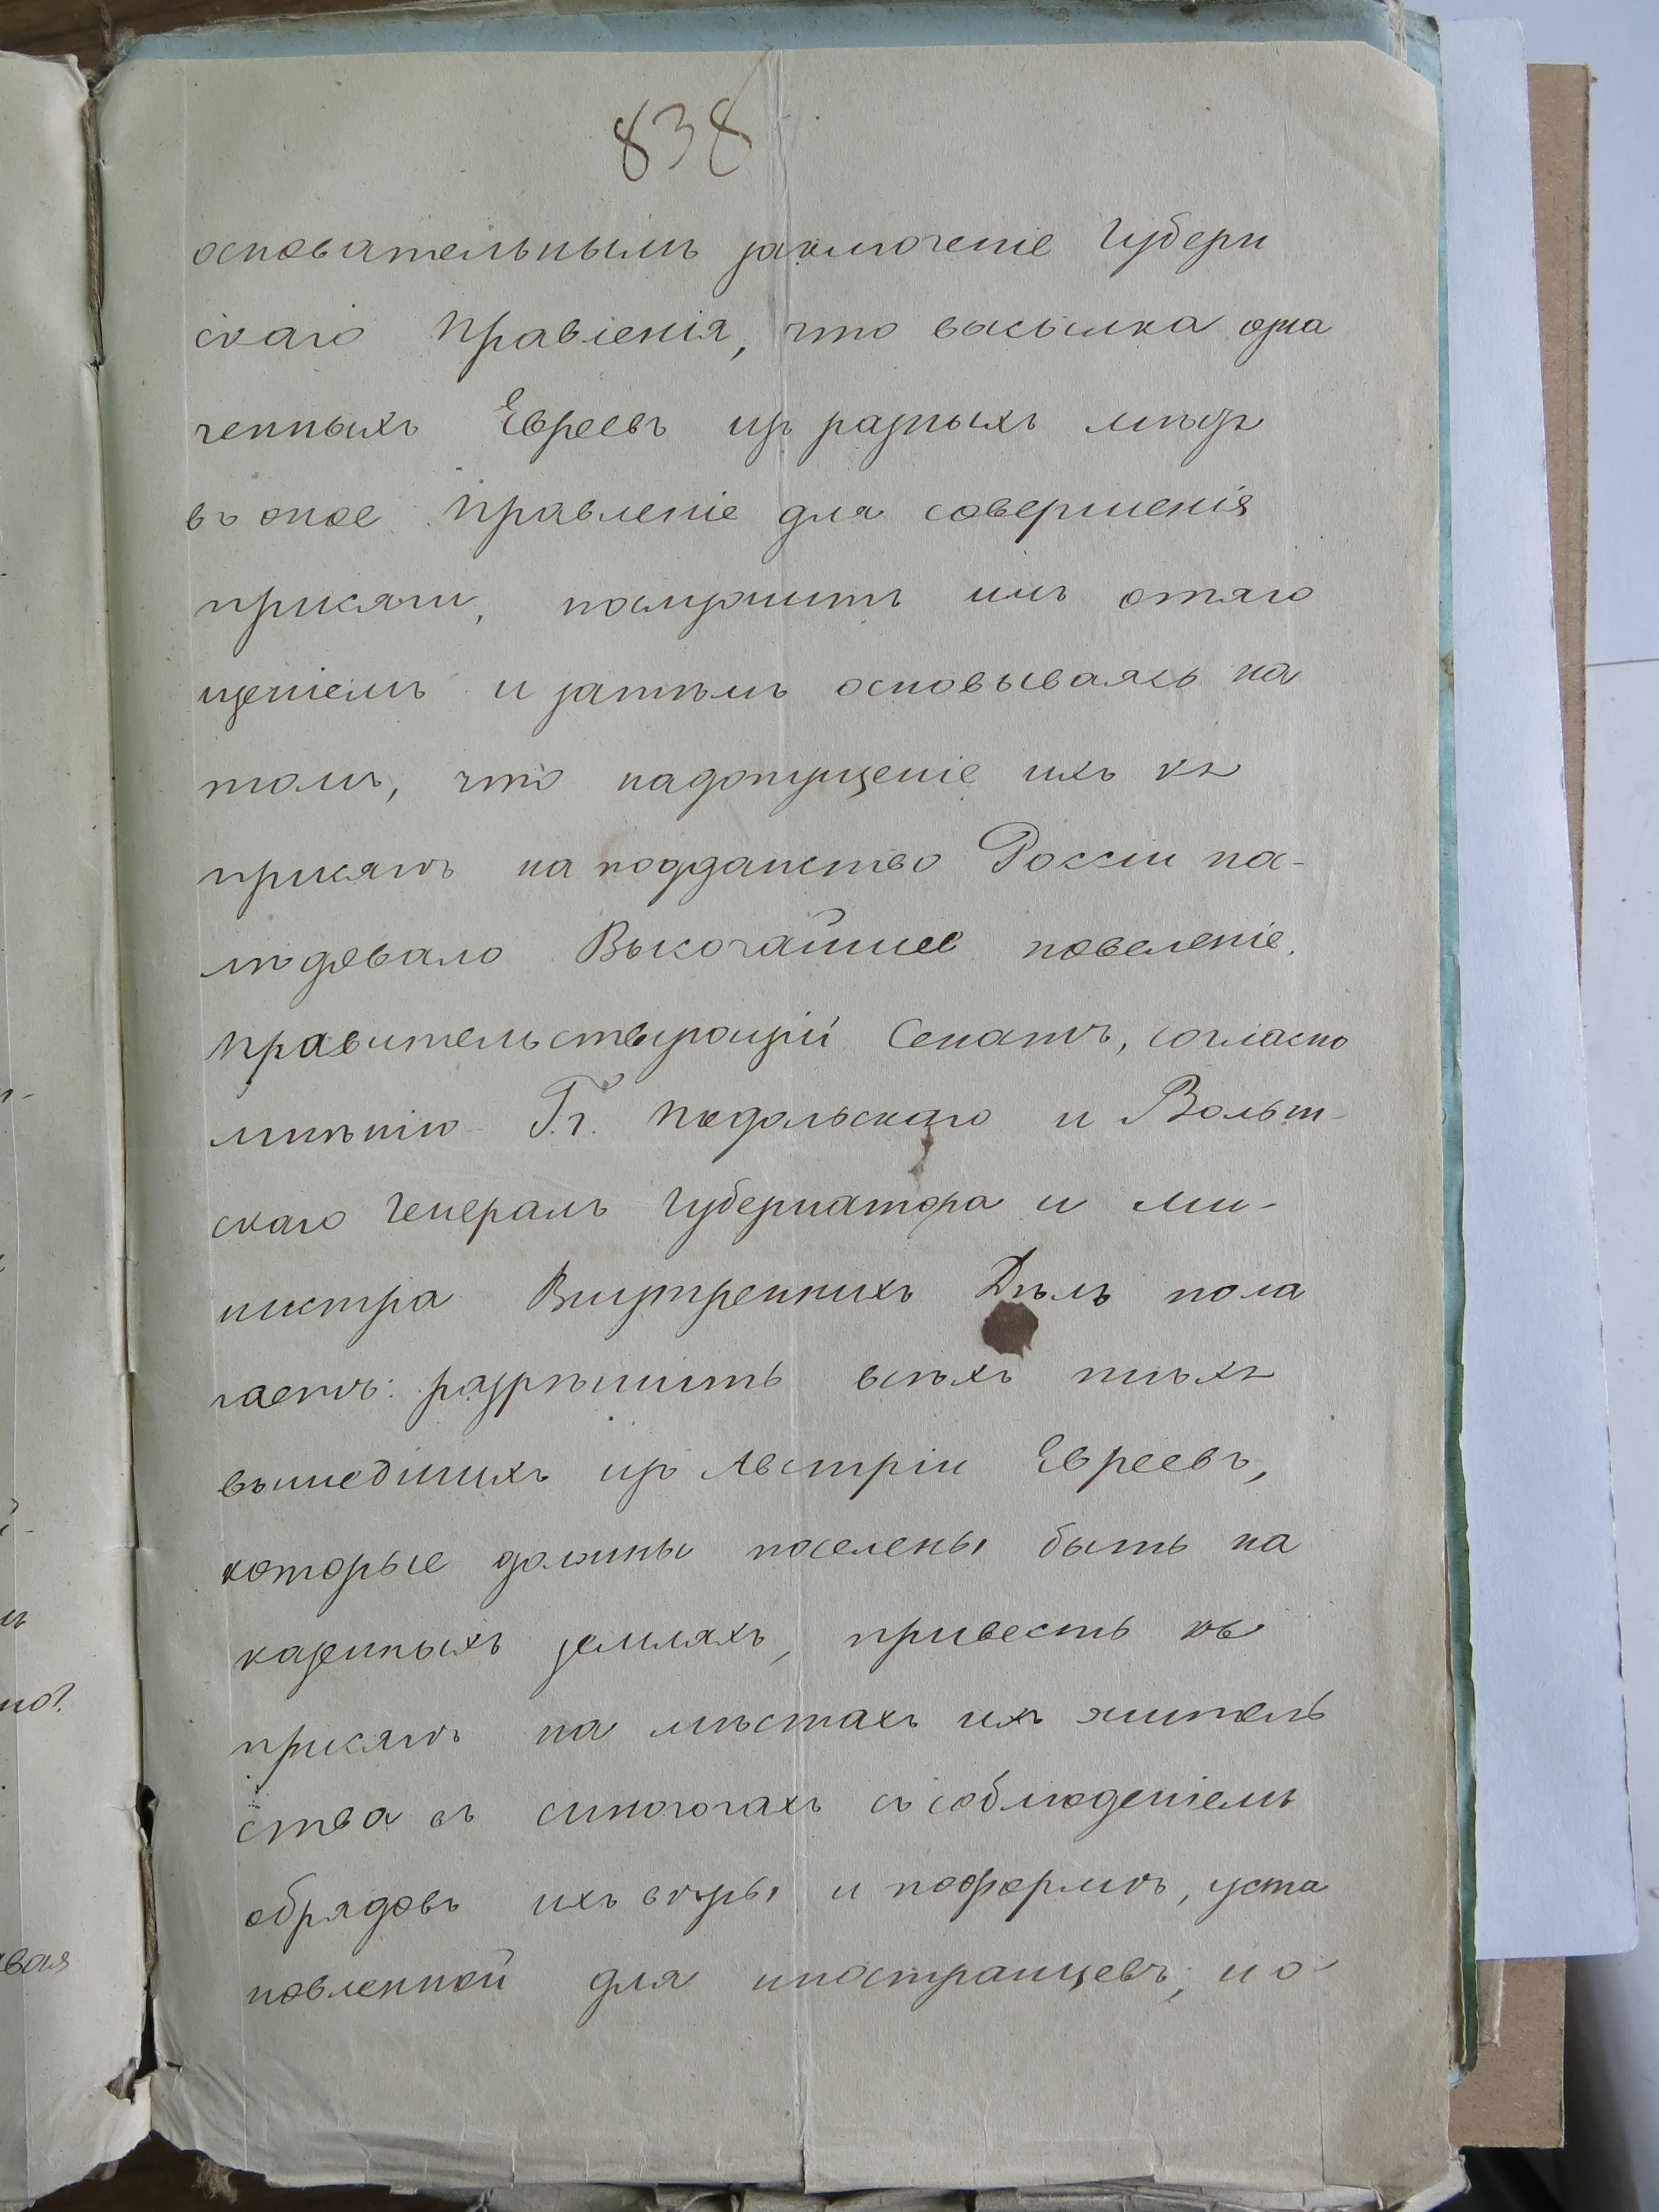 838
основательнымъ заключеніе Губерн
скаго Правленія, что высылка озна
ченныхъ Евреевъ изъ разныхъ мѣстъ
въ оное Правленіе для совершенія
присяги, послужитъ имъ отяго
щеніемъ и затѣмъ основываясь на
томъ, что надопущеніе ихъ къ
присягѣ на подданство Россіи по-
слѣдовало Высочайшее повеленіе.
Правительствующій Сенатъ, согласно
мнѣнію Г.г. Подольскаго и Волын-
скаго Генералъ Губернатора и Ми-
нистра Внутреннихъ Дѣлъ пола
гаетъ: разрѣшить всѣхъ тѣхъ
вышедшихъ изъ Австріи Евреевъ,
которые должны поселены быть на
казенныхъ земляхъ, привесть къ
присягѣ на мѣстахъ ихъ житель
ства въ синогогахъ съ соблюденіемъ
обрядовъ ихъ вѣры и поформѣ, уста
новленной для иностранцевъ, но